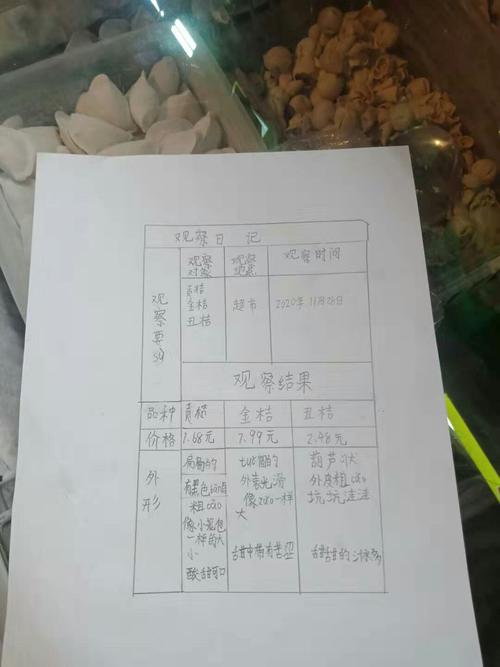 观察日记
观察 观察 观察时间
对象 地点
观察要
贡桔
金桔 超市 2020年11月28日
丑桔
观察结果
品种 贡桔 金桔 丑桔
价格 1.68元 7.99元 2.98元
外形
扁扁的 圆的 葫芦状
有黑色 外表光滑 外皮粗cāo
粗cāo 像zǎo一样 坑坑洼洼
像小笼包 大
一样的大
小
酸甜可口 甜中带有苦涩 甜甜的